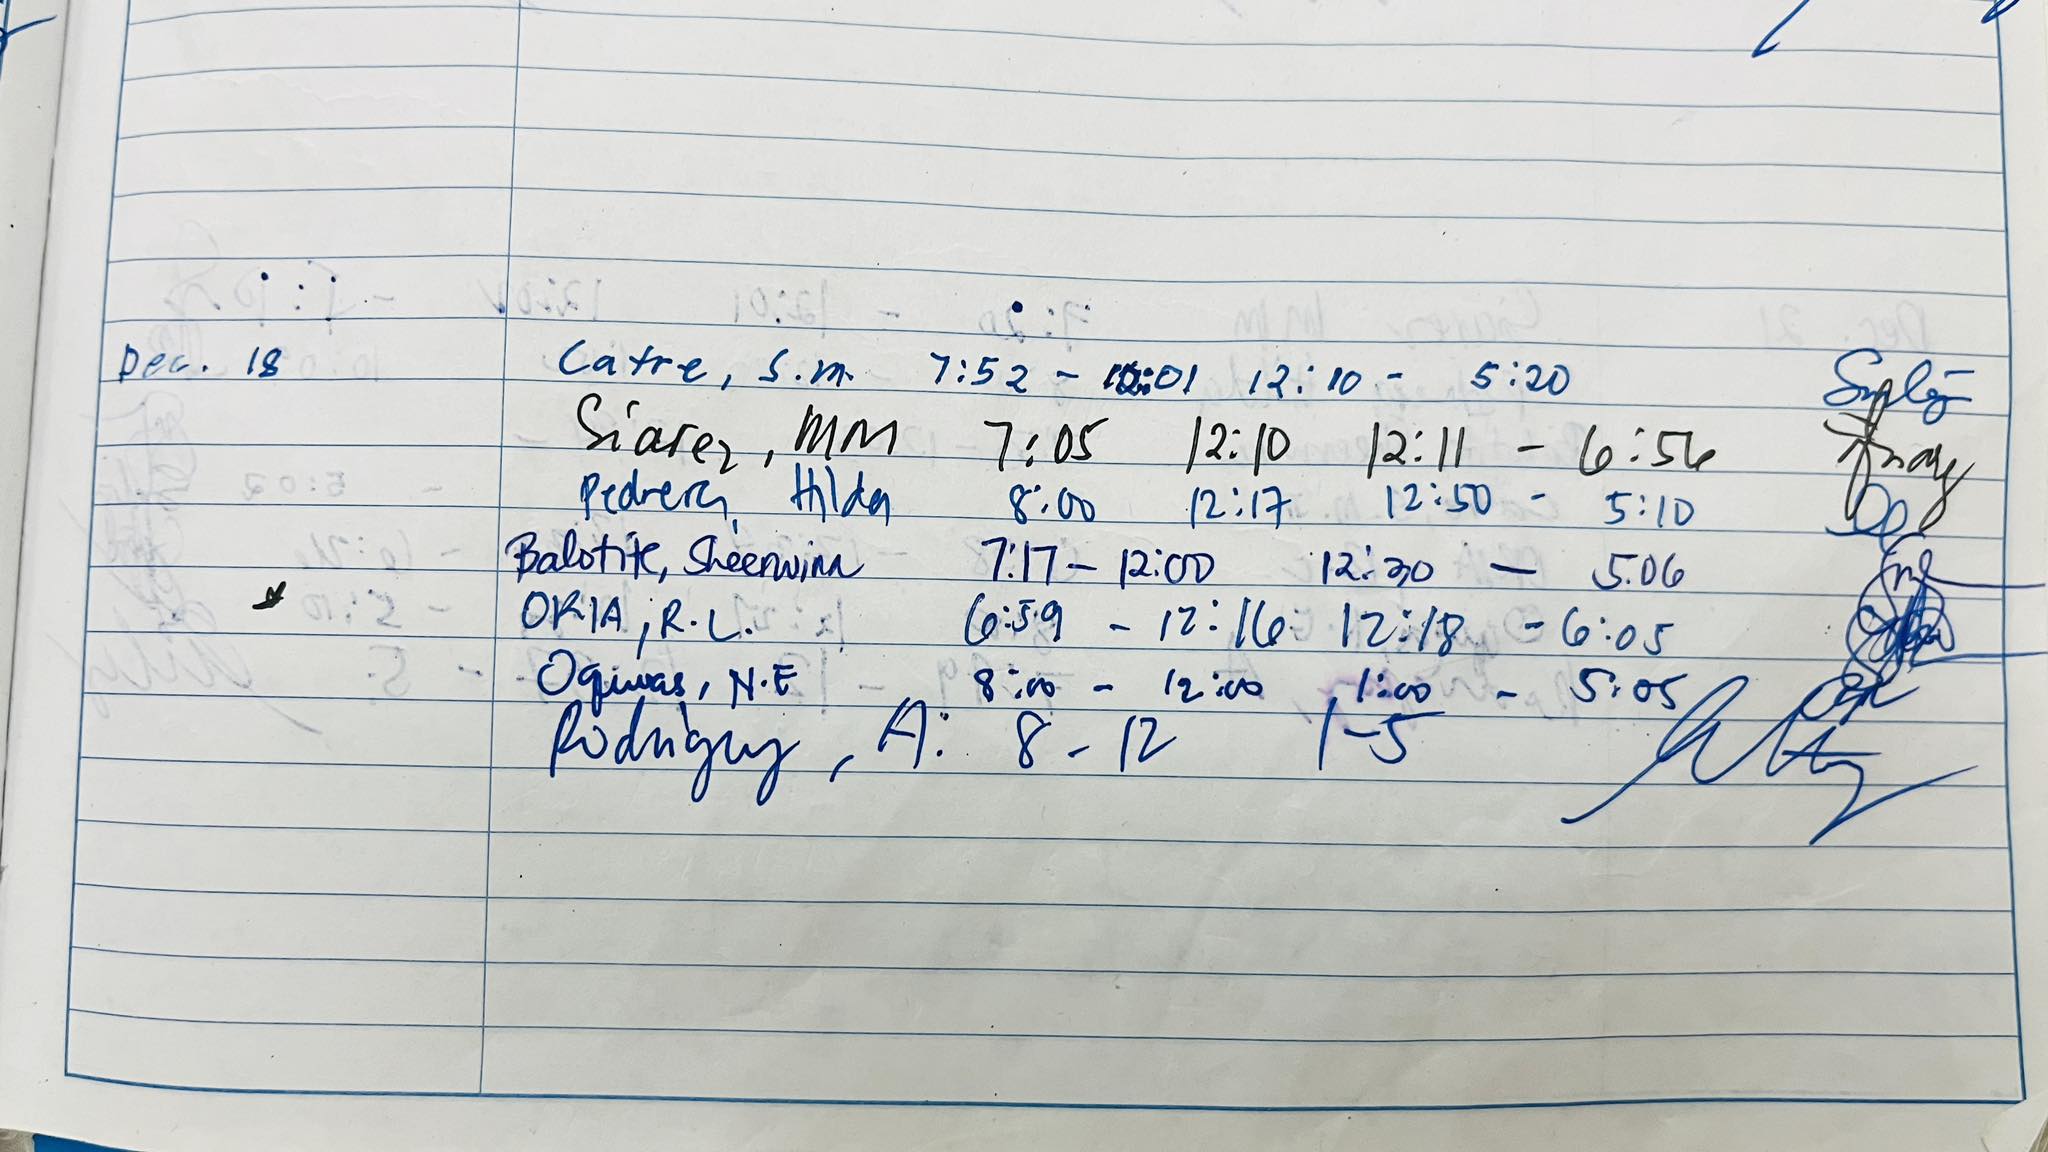 Dec. 18 Catre, S.M. 7:52 - 12:01 12:10 - 5:20
Siarez, MM 7:05 12:10 12:11 - 6:56
Pedrera, Hilda 8:00 12:17 12:50 - 5:10
Balotite, Sheerwinn 7:17 - 12:00 12:30 - 5.06
ORIA, R.L. 6:59 - 12:16 12:18 - 6:05
N.E 8:00 - 12:00 1:00 - 5:05
Rodriguez, A. 8 - 12 1-5